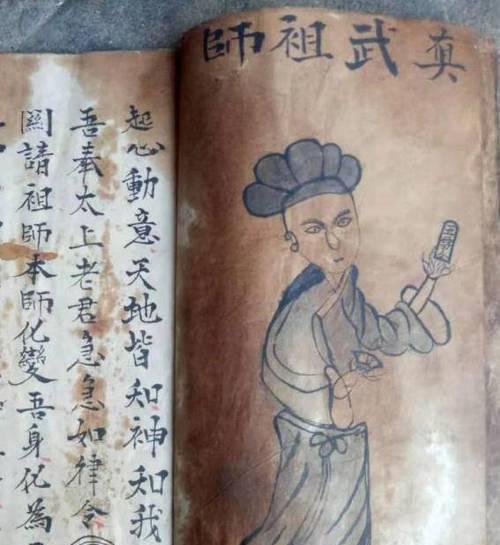 真武祖師
起心動意天地皆知神知我
吾奉太上老君急急如律令
請祖師本師化變吾身化為